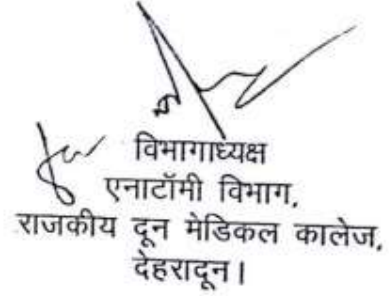 विभागाध्यक्ष
एनाटॉमी विभाग,
राजकीय दून मेडिकल कालेज,
देहरादून।